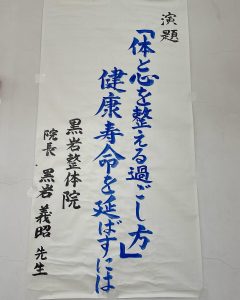 演題
「体と心を整える過ごし方」
健康寿命を延ばすには
黒岩整体院
院長 黒岩義昭 先生